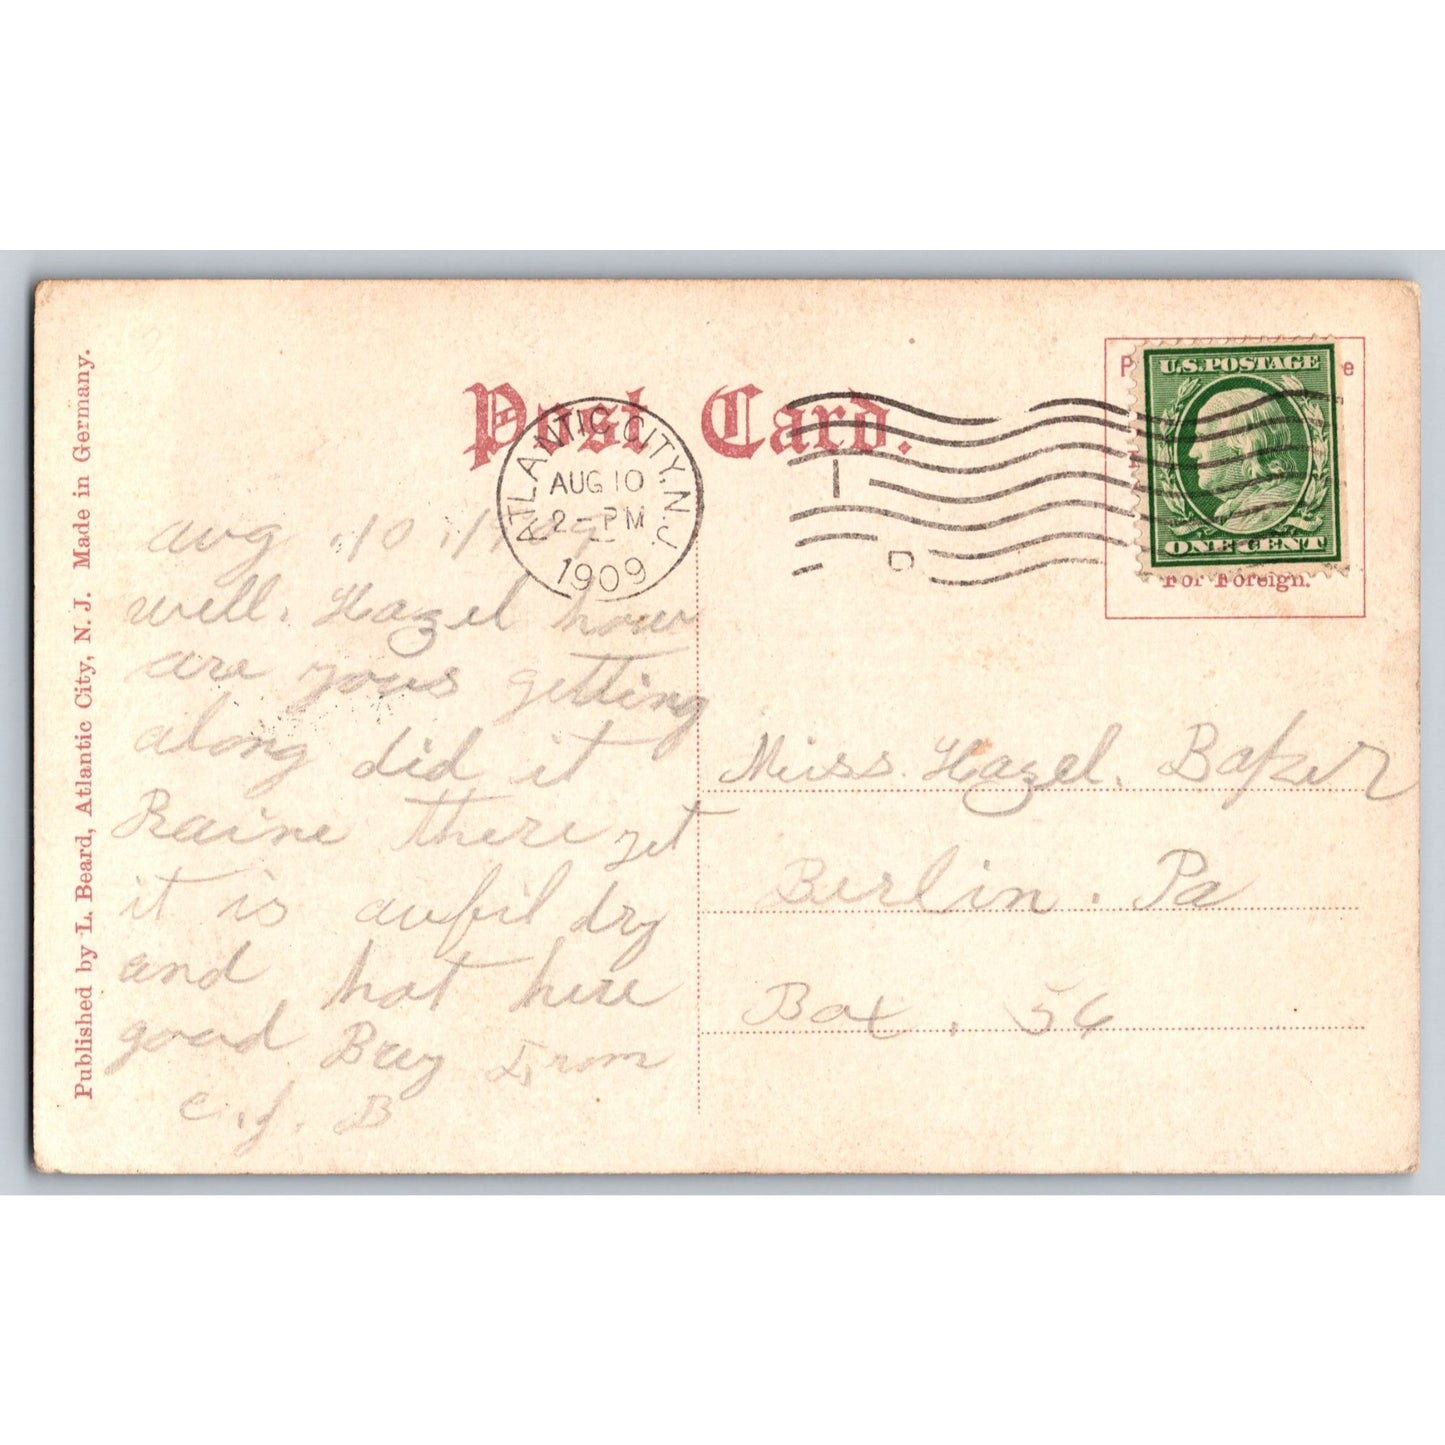 Post Card.
ATLANTIC CITY, N.J.
AUG 10
2-PM
1909
U.S. POSTAGE
ONE CENT
For Foreign.
Published by L. Beard, Atlantic City, N. J. Made in Germany.
aug . 10 . 1909
well. Hazel how
are yous getting
along did it
Raine there yet
it is aufil dry
and hot here
good Bey From
C. J. B
Miss. Hazel. Baker
Berlin. Pa
Box . 56